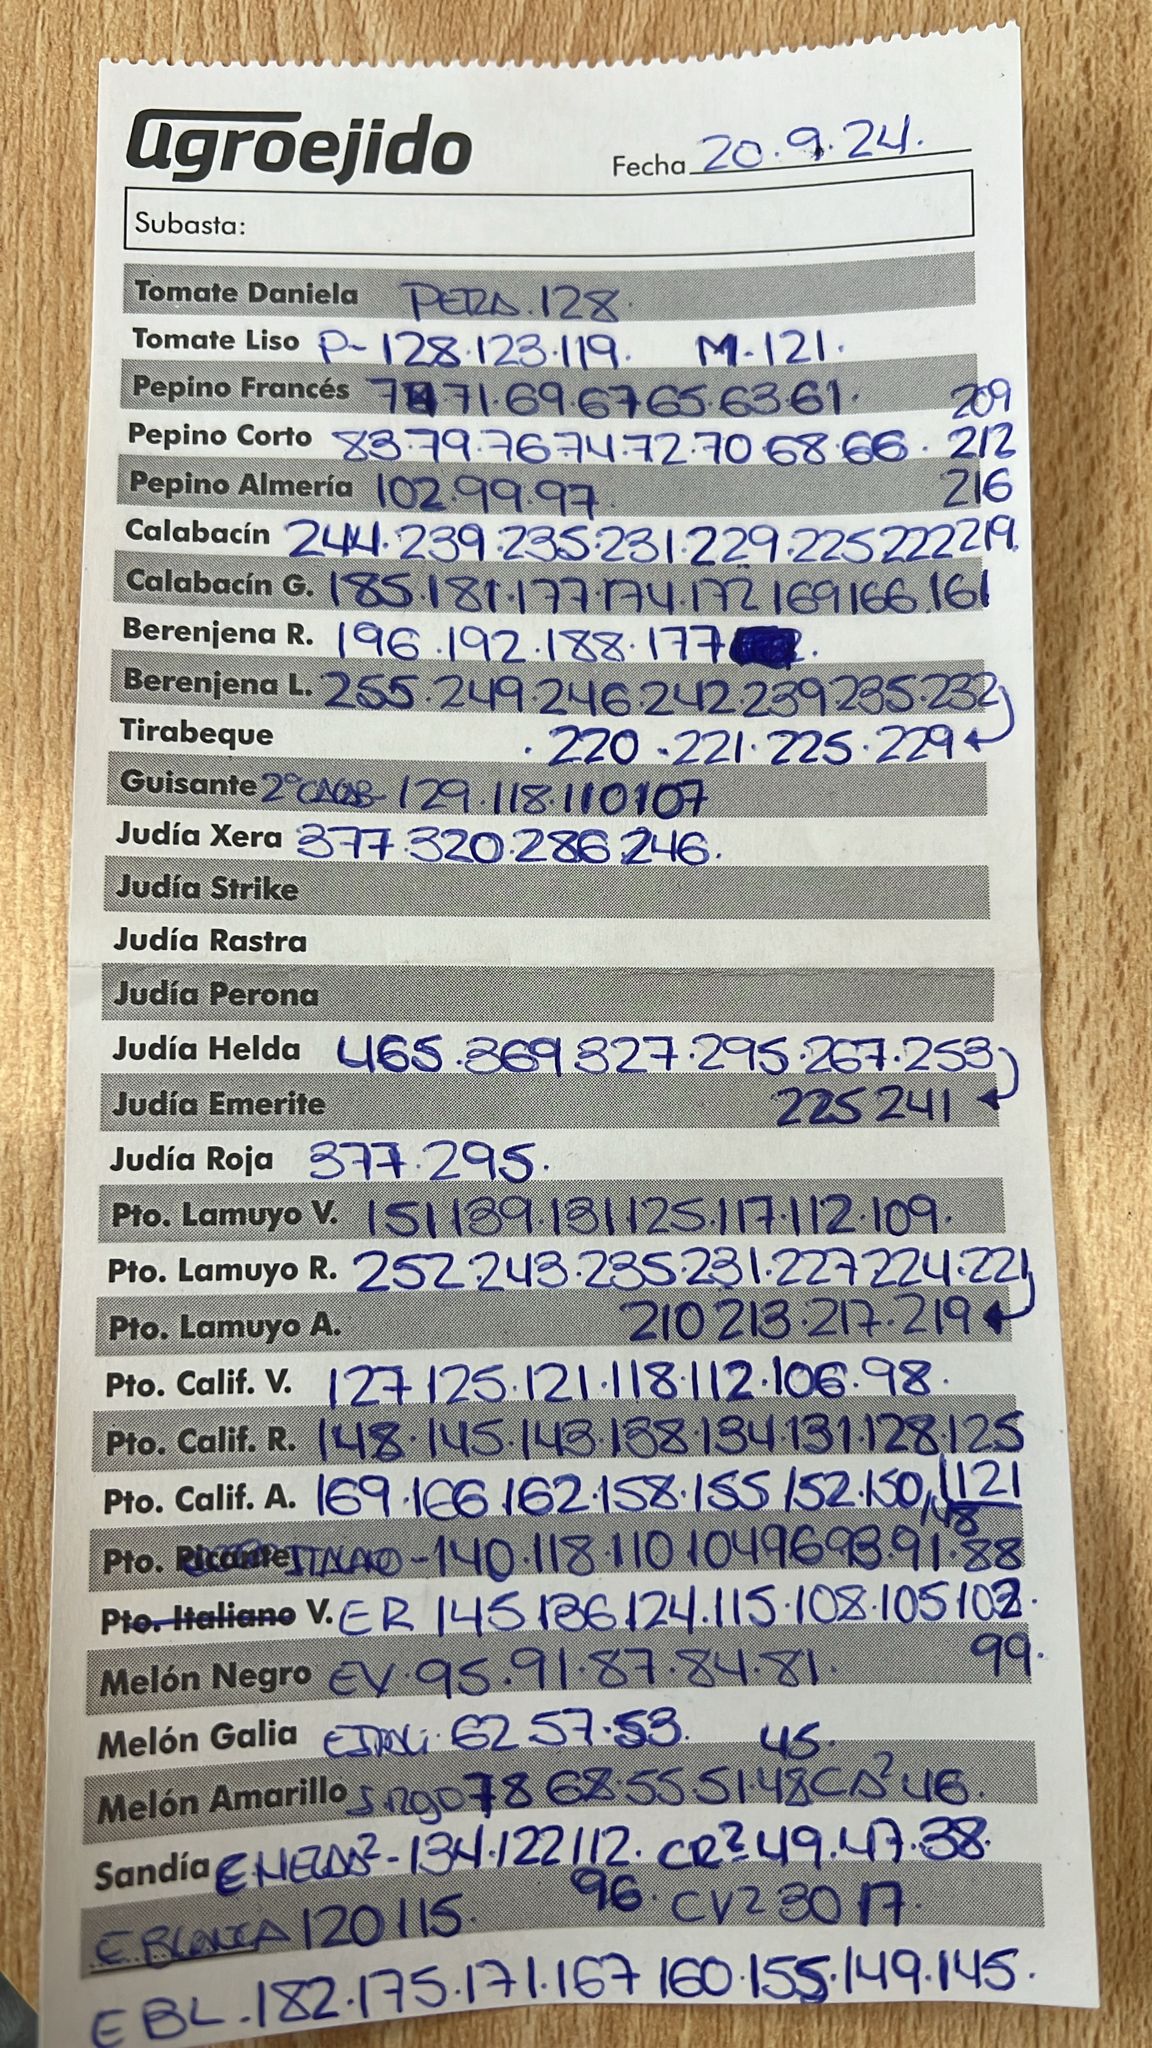 agroejido
Fecha 20.9.24.
Subasta:
Tomate Daniela PERA.128.
Tomate Liso P-128.123.119. M.121.
Pepino Francés 71.69.67.65.63.61. 209
Pepino Corto 83.79.76.74.72.70.68.66. 212
Pepino Almería 102.99.97 216
Calabacín 244.239.235.231.229.225 222 219.
Calabacín G. 185.181.177.174.172 169 166.161
Berenjena R. 196.192.188.177
Berenjena L. 255.249.246.242.239.235.232
Tirabeque .220.221.225.229
Guisante 129.118.110 107
Judía Xera 377.320.286 246.
Judía Strike
Judía Rastra
Judía Perona
Judía Helda 465.369 327.295.267.253
Judía Emerite 225 241
Judía Roja 377.295.
Pto. Lamuyo V. 151 139.131 125.117.112.109.
Pto. Lamuyo R. 252.243.235.231.227 224.221
Pto. Lamuyo A. 210 213.217.219
Pto. Calif. V. 127 125.121.118.112.106.98.
Pto. Calif. R. 148.145.143.138.134.131.128.125
Pto. Calif. A. 169.166.162.158.155 152.150 121
148
Pto. Picante -140.118.110 104 96 93.91.88
Pto. Italiano V. ER 145 136.124.115.108.105 102.
Melón Negro EV.95.91.87.84.81. 99.
Melón Galia 62 57.53. 45.
Melón Amarillo 78 68.55.51.48 CA2 46.
Sandía -134.122 112. CR2 49.47.38.
E BLANCA 120 115. 96. CV2 30 17.
E BL.182.175.171.167 160.155.149.145.